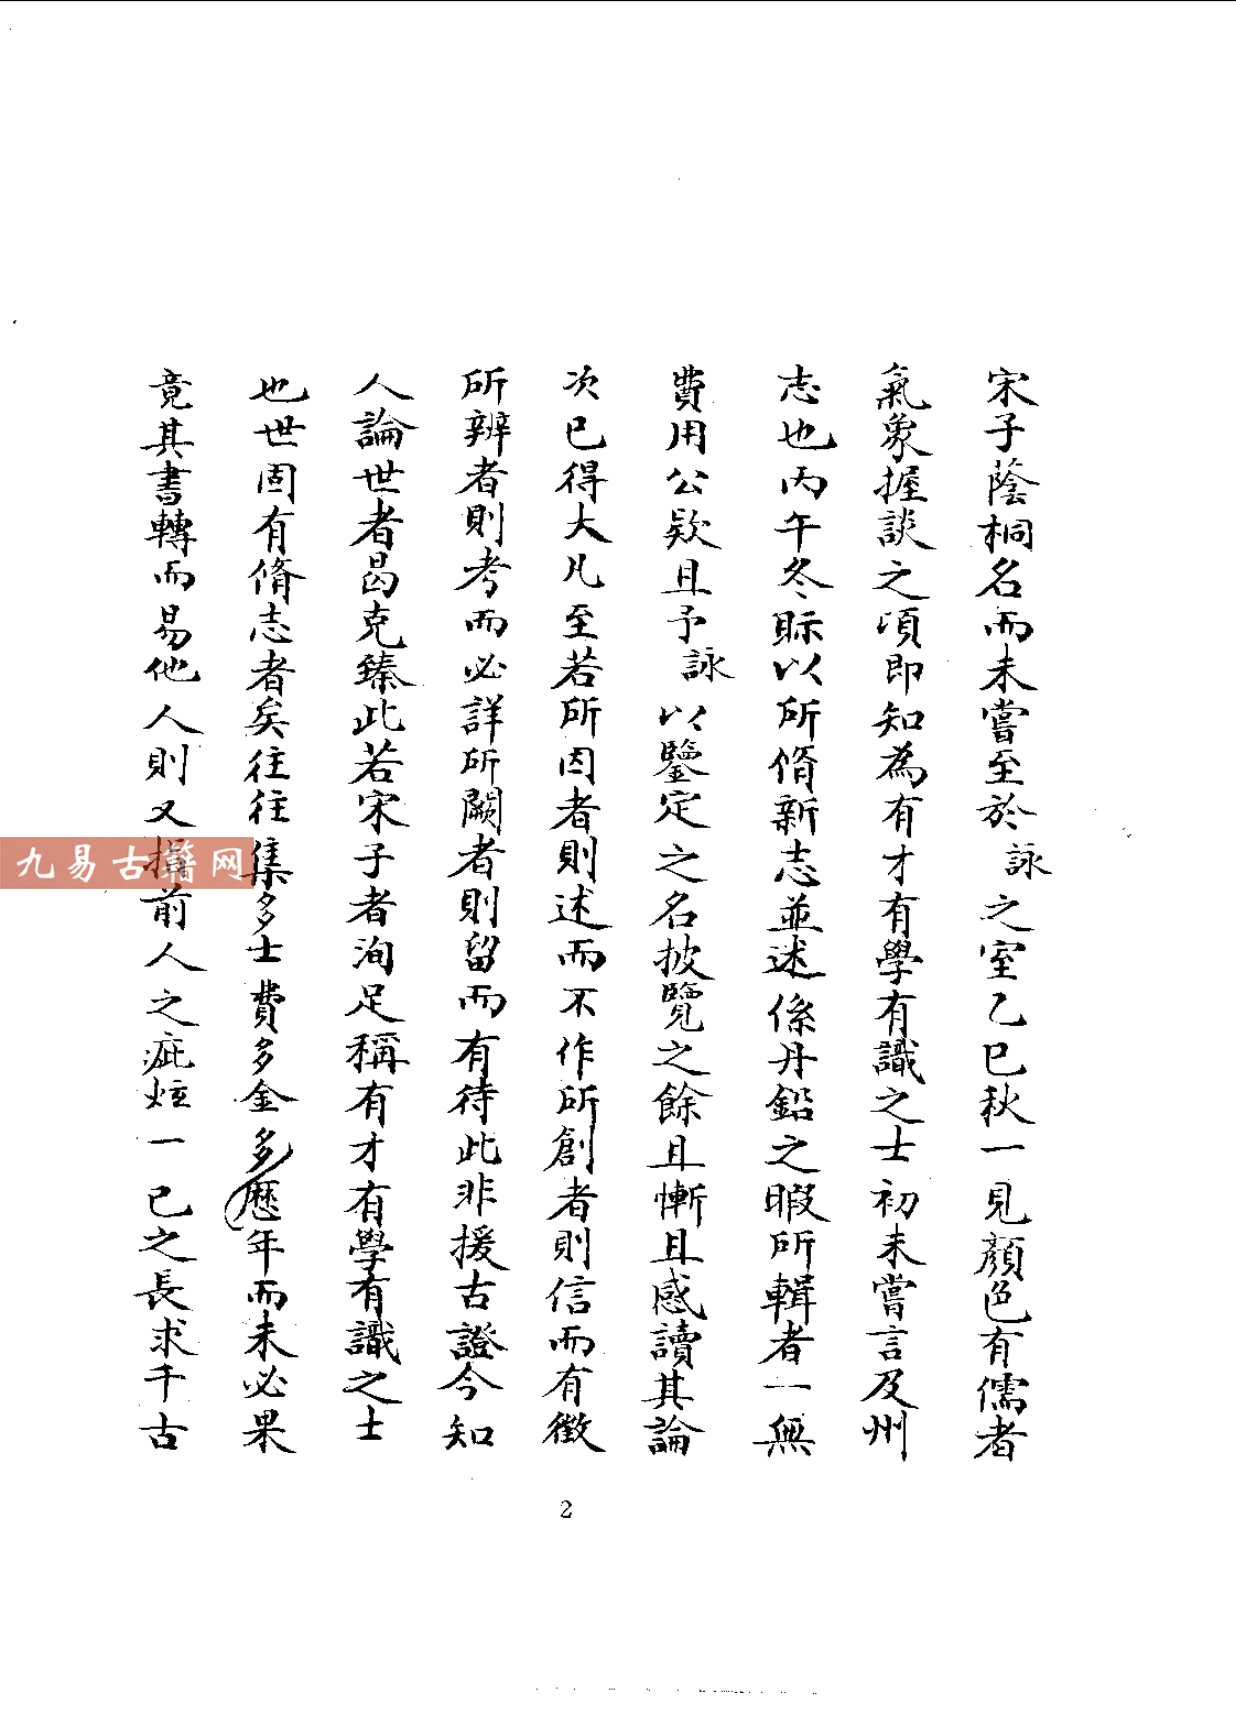 宋子蔭桐名而未嘗至於詠之室乙巳秋一見顏色有儒者
氣象握談之頃即知為有才有學有識之士初未嘗言及州
志也丙午冬賑以所脩新志並述係丹鉛之暇所輯者一無
費用公欵且予詠以鑒定之名披覽之餘且慚且感讀其論
次已得大凡至若所因者則述而不作所創者則信而有徵
所辨者則考而必詳所闕者則留而有待此非援古證今知
人論世者曷克臻此若宋子者洵足稱有才有學有識之士
也世固有脩志者矣往往集多士費多金多歷年而未必果
竟其書轉而易他人則又摭前人之疵炫一己之長求千古
九易古籍网
2